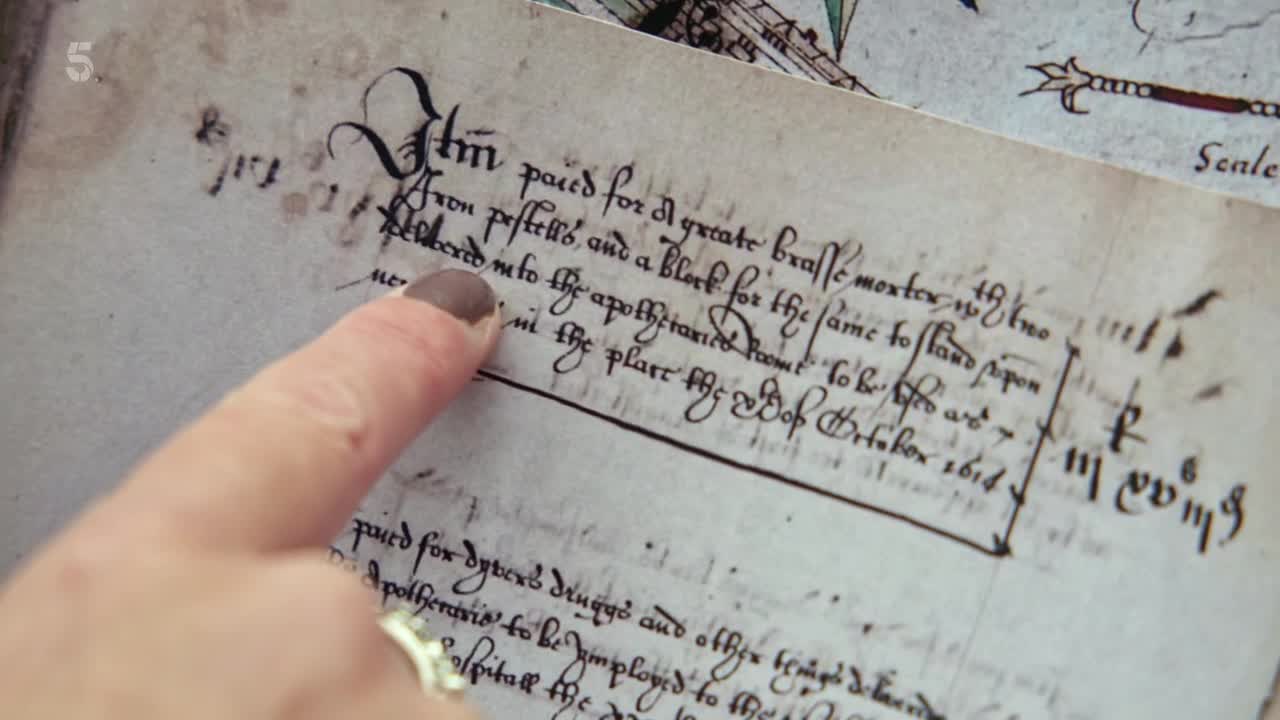 5
Scale
Itm̄ paied for A greate brasse morter, wth two
Iron pestells, and a block for the same to stand vpon
delivered into the apothecaries Roome to be vsed as
in the place the of October 1614
li
iij xvs iijd
paied for dyvers druggs and other things
Apothecarie to be Imployed to the
hospitall the